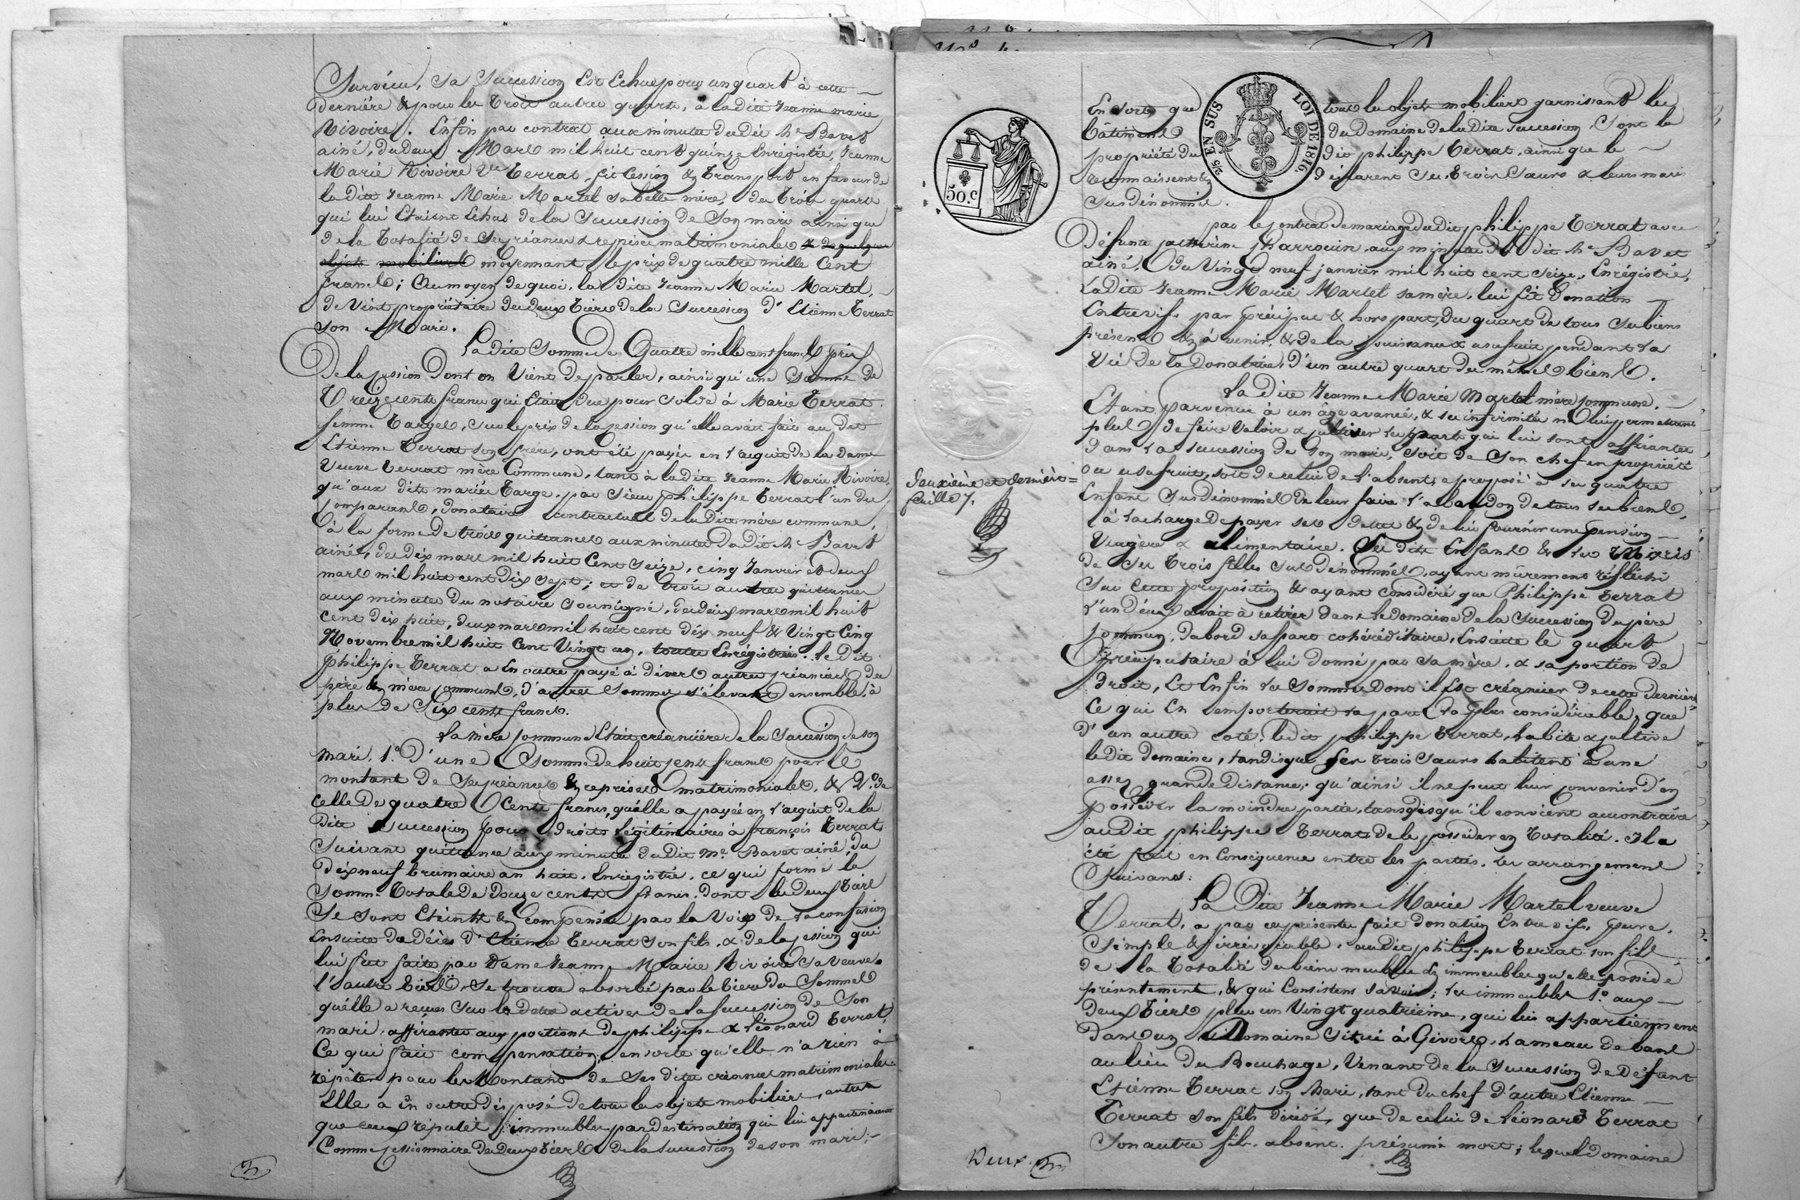 Survécu, sa succession est échue pour un quart à cette
dernière & pour les trois autres quarts, à la dite Jeanne marie
Rivoire. Enfin par contrat aux minutes du dit Me Bavet
ainé, du deux Mars mil huit cent quinze Enrégistré, Jeanne
Marie Rivoire Ve Terrat, fit cession & transport en faveur de
la dite Jeanne Marie Martel sa belle mère, des trois quarts
qui lui étaient échus de la succession de son mari ainsi que
de la totalité de ses créances & reprises matrimoniales & de quelques
objets mobiliers moyennant le prix de quatre mille cent
francs; Au moyen de quoi, la dite Jeanne Marie Martel,
devint propriétaire des deux tiers de la succession d'Etienne Terrat
son Mari.
La dite Somme de Quatre mille cent francs prix
De la cession dont on vient de parler, ainsi qu'une somme de
Treize cents francs qui était due pour solde à Marie Terrat
femme Targe, sur le prix de la cession qu'elle avait fait au dit
Etienne Terrat son frère, ont été payées en l'acquit de la dame
veuve Terrat mère Commune, tant à la dite Jeanne Marie Rivoire,
qu'aux dits mariés Targe, par sieur philippe Terrat l'un des
comparans, donataire contractuel de la Dite mère commune,
à la forme de trois quittances aux minutes du dit Me Bavet
ainé, des dix mars mil huit Cent seize, cinq Janvier et deux
mars mil huit cent dix sept; et de trois autres quittances
aux minutes du notaire soussigné, des deux mars mil huit
cent dix huit, deux mars mil huit cent dix neuf & Vingt Cinq
Novembre mil huit Cent Vingt un, toutes Enrégistrées. Le dit
philippe Terrat a en outre payé à divers autres créanciers des
père & mère communs, d'autres sommes s'élevant ensemble, à
plus de Six cents francs.
La mère commune était créancière de la Succession de son
mari, 1o. D'une Somme de huit cents francs pour le
montant de ses créances & reprises matrimoniales, & 2o. de
celle de quatre Cents francs, qu'elle a payée en l'acquit de la
Dite succession pour droits légitimaires à françois Terrat
suivant quittance aux minutes du Dit Me. Bavet ainé, du
dix neuf brumaire an huit, Enrégistrée, ce qui forme la
somme totale de Douze cents francs, dont les deux tiers
se sont éteints & compensés par la Voix de la confusion
ensuite du décès d'Etienne Terrat son fils, & de la cession qui
lui fut faite par Dame Jeanne Marie Rivoire sa veuve,
l'autre tiers, se trouve absorbé par le tiers des Sommes
qu'elle a reçues sur les dettes actives de la succession de son
mari, afférantes aux portions de philippe & Léonard Terrat,
Ce qui fait compensation, ensorte qu'elle n'a rien à
répéter pour le Montant de ses dites créances matrimoniales.
Elle a en outre disposé de tous les objets mobiliers, autres
que ceux réputés immeubles par destination qui lui appartenaient
Comme cessionnaire des Deux tiers de la succession de son mari;
En sorte que tous les objets mobiliers garnissant les
bâtimens du Domaine de la Dite succession, sont la
propriété du dit philippe Terrat, ainsi que le
reconnaissent & déclarent ses trois sœurs & leurs maris
sus dénommés.
par le contrat de mariage du Dit philippe Terrat avec
Défunte Catherine Charrouin, aux minutes du dit Me Bavet
ainé, du Vingt neuf janvier mil huit cent seize, Enrégistré,
La dite Jeanne Marie Martel sa mère, lui fit donation
Entrevifs par préciput & hors part, du quart de tous ses biens
présens & à venir, & de la jouissance & usufruit pendant la
Vie de la donatrice, d'un autre quart des mêmes biens.
La dite Jeanne Marie Martel mère commune,
Etant parvenue à un âge avancé, & ses infirmités ne lui permettant
plus de faire Valoir & cultiver les parts qui lui sont afférantes
dans la succession de son mari, soit de son chef en propriété
ou usufruit, soit de celui de l'absent, a proposé à ses quatre
Enfans Susdénommés de leur faire l'abandon de tous ses biens,
à la charge de payer ses dettes & de lui fournir une pension
viagère & alimentaire. Ses dits Enfans & les Maris
de ses trois filles susdénommés, ayant mûrement réfléchi
sur cette proposition & ayant considéré que Philippe Terrat
l'un d'eux avait à retirer dans le domaine de la succession du père
commun, d'abord sa part cohéréditaire, Ensuite le quart
préciputaire à lui donné par sa mère, & sa portion de
droit, et Enfin les sommes dont il Est créancier de cette dernière,
ce qui en emporterait la part la plus considérable, que
d'un autre coté, le dit philippe Terrat, habite & cultive
le dit domaine, tandis que ses trois sœurs habitent à une
assez grande distance, qu'ainsi il ne peut leur convenir d'en
posséder la moindre partie, tandis qu'il convient au contraire
au dit philippe Terrat de le posséder en totalité. Il a
été fait en conséquence entre les parties, les arrangemens
Suivans:
La Dite Jeanne Marie Martel veuve
Terrat, a par ces présentes fait donation Entre vifs, pure,
simple & irrévocable, au dit philippe Terrat son fils
de la totalité des biens meubles & immeubles qu'elle possède
présentement, & qui consistent savoir; les immeubles 1o. aux
deux tiers plus un Vingt quatrième, qui lui appartiennent
dans un Domaine situé à Givors, hameau de bans
au lieu du Bouchage, Venant de la succession de Défunt
Etienne Terrat son Mari, tant du chef d'autre Etienne
Terrat son fils décédé, que de celui de Léonard Terrat
son autre fils absent, présumé mort; lequel domaine
25 EN SUS
LOI DE 1816
50.c
Deuxième et dernière
feuille /.
Deux